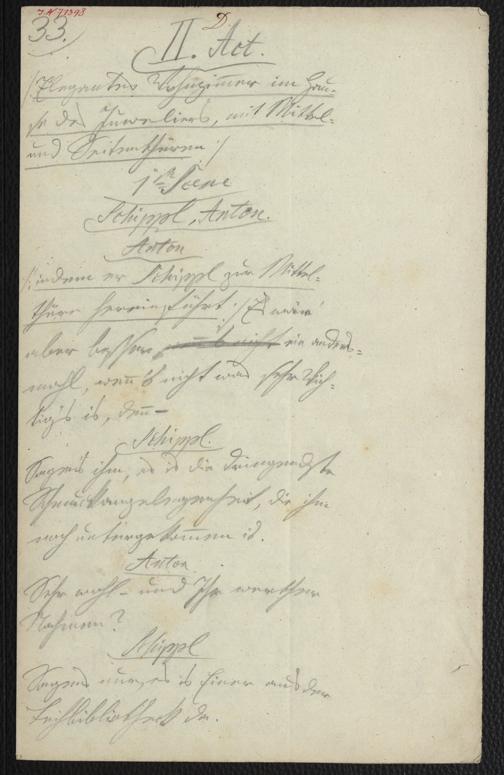 I.N. 71393
33.
II. Act.
/: Elegantes Vorzimmer im Hau-
se des Juweliers, mit Mittel-
und Seitenthüren :/
1te Scene
Schippl, Anton.
Anton
/: indem er Schippl zur Mittel-
thüre hereinführt :/ Es wär'
aber besser, ein anders-
mahl, wenn's nicht was sehr Wich-
tigs is, denn –
Schippl.
Sagen's ihm, es is die dringendste
Schmuckangelegenheit, die ihm
noch untergekommen is.
Anton
Sehr wohl – und Ihr werther
Nahmen?
Schippl
Sagens nur, es is Einer aus der
Leihbibliotheck da.